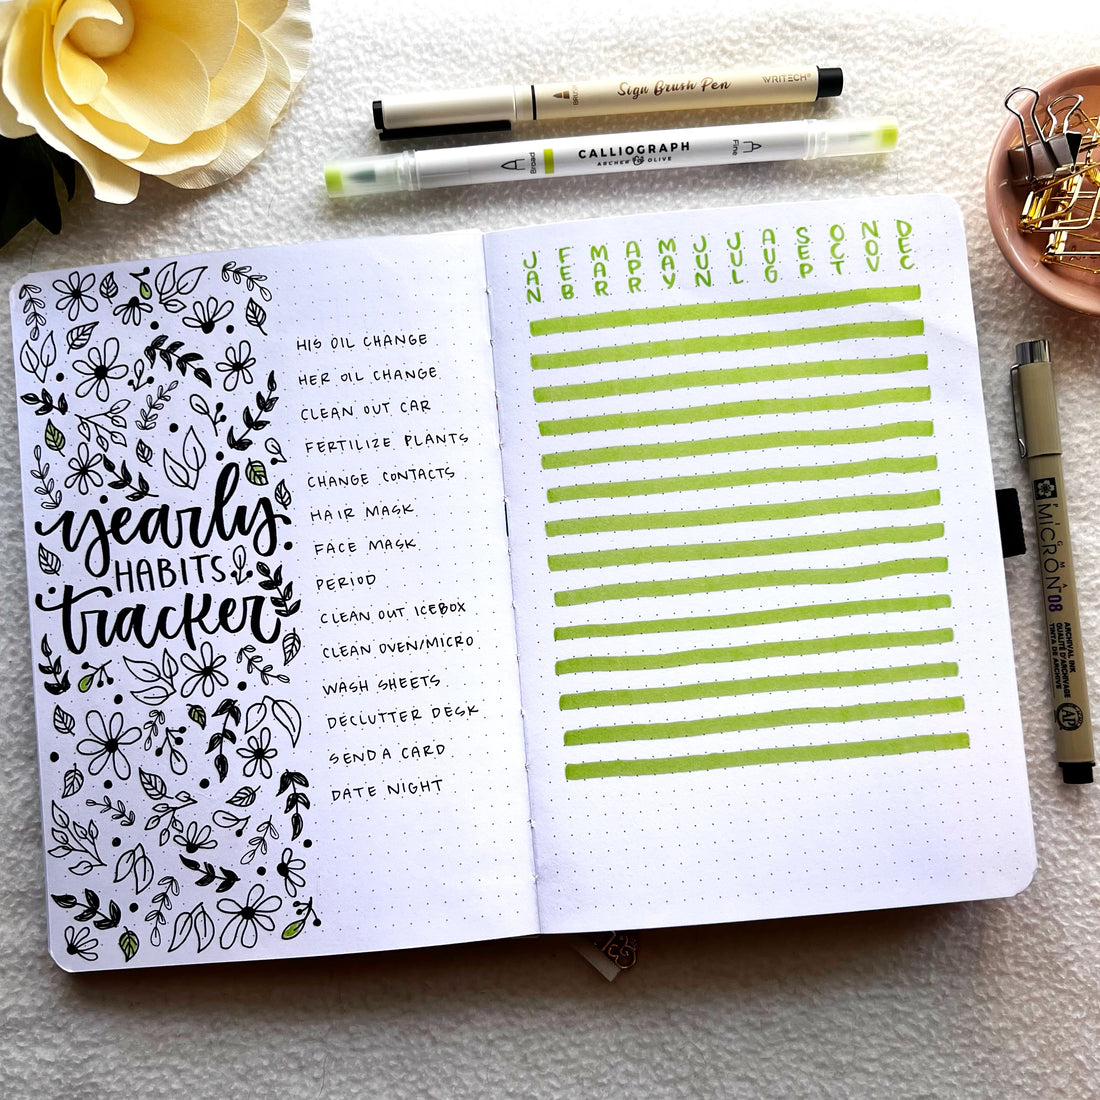 Brush
Sign Brush Pen
WRITECH®
Broad
CALLIOGRAPH
ARCHER OLIVE
Fine
JAN FEB MAR APR MAY JUN JUL AUG SEP OCT NOV DEC
yearly
HABITS
tracker
HIS OIL CHANGE
HER OIL CHANGE
CLEAN OUT CAR
FERTILIZE PLANTS
CHANGE CONTACTS
HAIR MASK
FACE MASK
PERIOD
CLEAN OUT ICEBOX
CLEAN OVEN/MICRO
WASH SHEETS
DECLUTTER DESK
SEND A CARD
DATE NIGHT
PIGMA
MICRON 08
ARCHIVAL INK
QUALITÉ D'ARCHIVAGE
TINTA DE ARCHIVE
AP